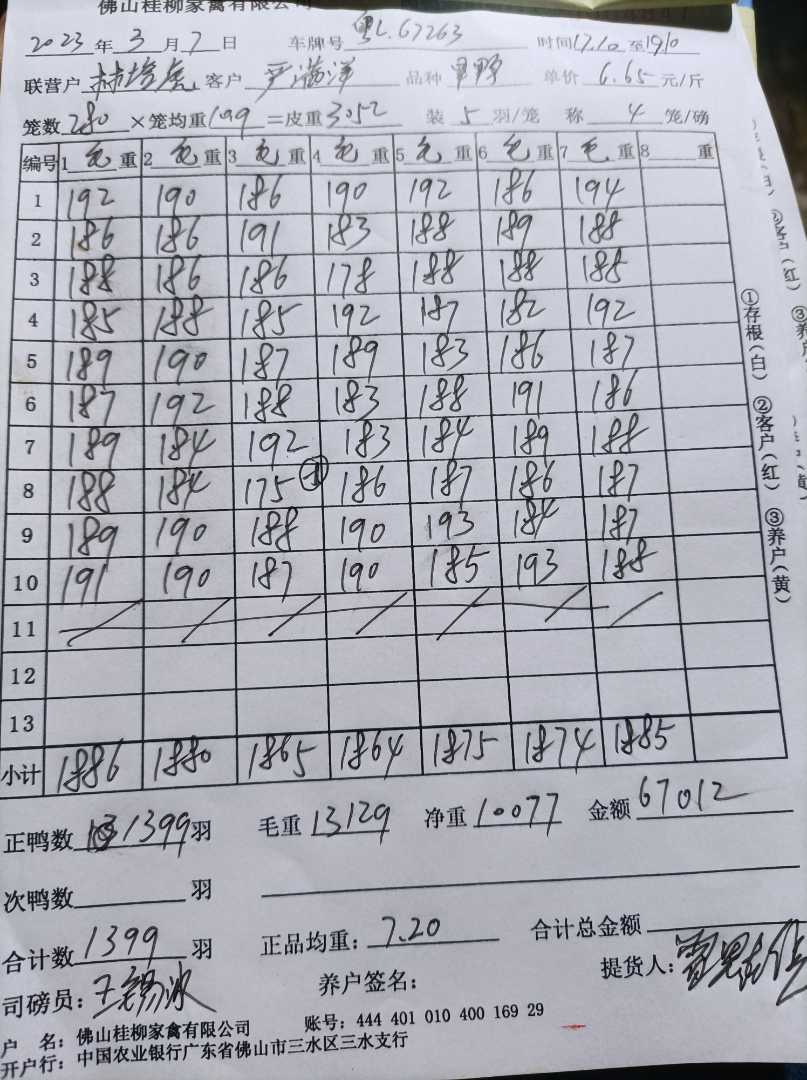 佛山桂柳家禽有限公司
2023年3月7日 车牌号 粤L.67263 时间17.10至1910
联营户 客户 严满洋 品种 单价 6.65 元/斤
笼数280×笼均重109=皮重3052 装5羽/笼 称4笼/磅
编号 1毛重 2毛重 3毛重 4毛重 5毛重 6毛重 7毛重 8 重
1 192 190 186 190 192 186 194
2 186 186 191 183 188 189 188
3 188 186 186 178 188 188 188
4 185 188 185 192 187 182 192
5 189 190 187 189 183 186 187
6 187 192 188 183 188 191 186
7 189 184 192 183 184 189 188
8 188 184 175 -1 186 187 186 187
9 189 190 188 190 193 184 187
10 191 190 187 190 185 193 188
11
12
13
小计 1886 1880 1865 1864 1875 1874 1885
正鸭数 1399羽 毛重 13129 净重 10077 金额 67012
次鸭数 羽
合计数 1399 羽 正品均重: 7.20 合计总金额
司磅员: 王锡冰 养户签名: 提货人:
户 名: 佛山桂柳家禽有限公司 账号: 444 401 010 400 169 29
开户行: 中国农业银行广东省佛山市三水区三水支行
①存根(白) ②客户(红) ③养户(黄)